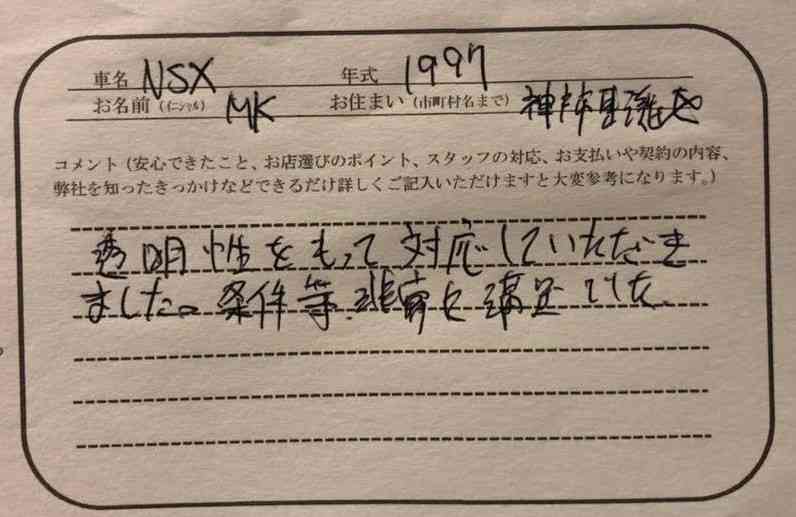 車名 NSX 年式 1997
お名前（イニシャル） MK お住まい（市町村名まで）
コメント（安心できたこと、お店選びのポイント、スタッフの対応、お支払いや契約の内容、
弊社を知ったきっかけなどできるだけ詳しくご記入いただけますと大変参考になります。）
透明性をもって対応していただき
ました。条件等、非常に満足でした。